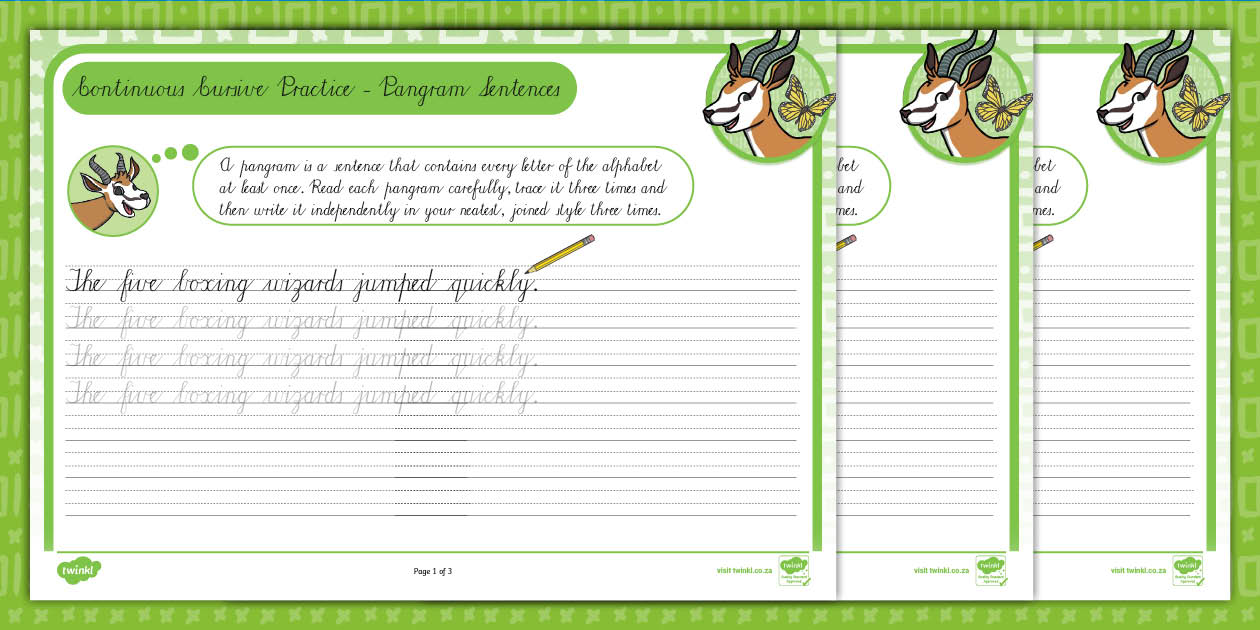 Continuous Cursive Practice - Pangram Sentences
A pangram is a sentence that contains every letter of the alphabet
at least once. Read each pangram carefully, trace it three times and
then write it independently in your neatest, joined style three times.
The five boxing wizards jumped quickly.
The five boxing wizards jumped quickly.
The five boxing wizards jumped quickly.
The five boxing wizards jumped quickly.
twinkl
Page 1 of 3
visit twinkl.co.za
twinkl
Quality Standard
Approved
bet
and
mes.
visit twinkl.co.za
twinkl
Quality Standard
Approved
bet
and
mes.
visit twinkl.co.za
twinkl
Quality Standard
Approved